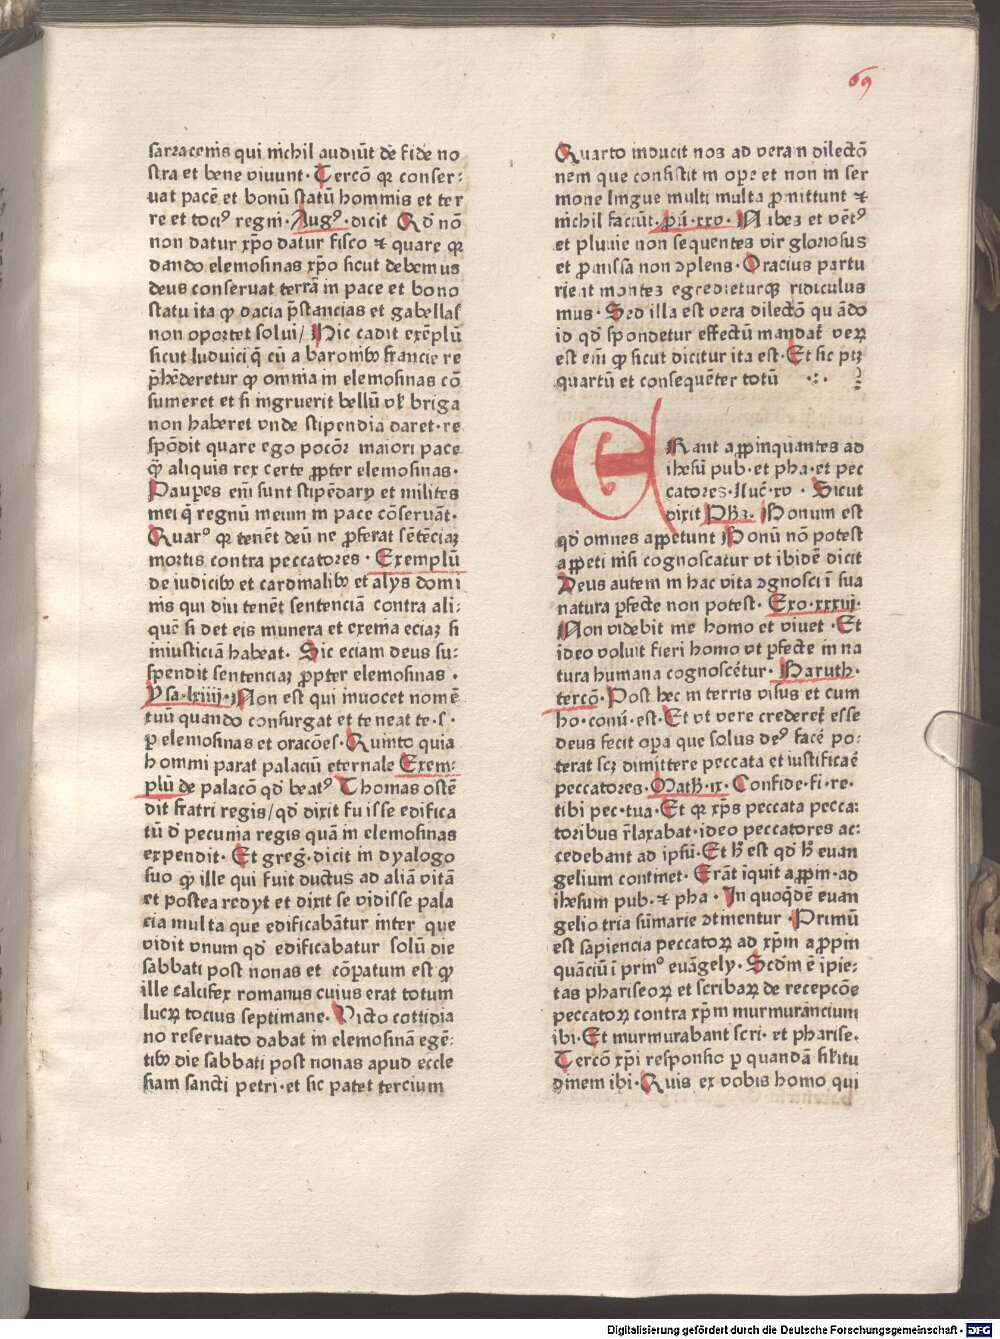 69
sarracenis qui nichil audiūt de fide no
stra et bene viuunt· Tercō qr conser⸗
uat pacē et bonū statū hominis et ter
re et tociꝰ regni· Augꝰ· dicit Qd nō
non datur xp̄o datur fisco ⁊ quare qr
dando elemosinas xp̄o sicut debemus
deus conseruat terrā in pace et bono
statu ita ꝙ dacia p̄stancias et gabellas
non oportet solui/ Hic cadit exēplū
sicut luduici q̄ cū a baronibꝰ francie re
p̄hēderetur ꝙ omnia in elemosinas cō
sumeret et si ingruerit bellū vꝉ briga
non haberet vnde stipendia daret· re
spōdit quare ego pocōꝛ maiori pace
ꝙ̄ aliquis rex certe ꝓpter elemosinas·
Paupes em̄ sunt stipēdarij et milites
mei q̄ regnū meum in pace cōseruāt·
Quarꝰ qr tenēt deū ne ꝓferat sētēciaꝫ
mortis contra peccatores · Exemplū
de iudicibꝰ et cardinalibꝰ et alijs domi
nis qui diu tenēt sentenciā contra ali⸗
quē si det eis munera et exenia eciaꝫ si
iniusticiā habeat· Sic eciam deus su⸗
spendit sentenciaꝫ ꝓpter elemosinas ·
Ysa·lxiiii· Non est qui inuocet nomē
tuū quando consurgat et teneat te·s·
ꝑ elemosinas et oracōes· Quinto quia
homini parat palaciū eternale Exem⸗
plū de palacō qd beatꝰ Thomas ostē
dit fratri regis/ qd dixit fuisse edifica
tū d̄ pecunia regis quā in elemosinas
expendit· Et greḡ· dicit in dyalogo
suo ꝙ ille qui fuit ductus ad aliā vitā
et postea redijt et dixit se vidisse pala
cia multa que edificabātur inter que
vidit vnum qd edificabatur solū die
sabbati post nonas et cōpatum est ꝙ
ille calcifex romanus cuius erat totum
lucrꝫ tocius septimane· Victo cottidia
no reseruato dabat in elemosinā egē⸗
tibꝰ die sabbati post nonas apud eccle
siam sancti petri· et sic patet tercium
Quarto inducit nos ad veram dilectō
nem que consistit in opere et non in ser
mone lingue multi multa ꝓmittunt ⁊
nichil faciūt· ꝓū·xxv· Nubes et vētꝰ
et pluuie non sequentes vir gloriosus
et ꝓmissa non ↄplens· Oracius partu
rient montes egredieturqꝫ ridiculus
mus· Sed illa est vera dilectō quādo
id qd spondetur effectū mandat᷑ verꝫ
est em̄ ꝙ sicut dicitur ita est· Et sic ptꝫ
quartū et consequēter totū
ERant aꝓpinquantes ad
ihesū pub·et pha·et pec
catores·luc̄·xv· Sicut
dixit Phs̄· Bonum est
qd omnes appetunt Bonū nō potest
appeti nisi cognoscatur vt ibidē dicit
Deus autem in hac vita ↄgnosci ī sua
natura ꝑfecte non potest· Exo·xxxiij·
Non videbit me homo et viuet · Et
ideo voluit fieri homo vt ꝑfecte in na
tura humana cognoscētur· Baruth·
tercō· Post hec in terris visus et cum
ho·conū·est· Et vt vere crederet᷑ esse
deus fecit oꝑa que solus deꝰ facē po⸗
terat scꝫ dimittere peccata et iustificaē
peccatores· Math·ix· Confide·fi·re·
tibi pec·tua· Et qr xp̄s peccata pecca⸗
toribus r̄laxabat· ideo peccatores ac⸗
cedebant ad ipsū· Et h̄ est qd h̄ euan
gelium continet· Erāt inquit aꝓpm·ad
ihesum pub·⁊ pha· In quoqdē euan
gelio tria sūmarie ↄtinentur · Primū
est sapiencia peccatoꝝ ad xp̄m aꝓpin
quāciū ī prīnꝰ euāgely· Scdm ē īpie⸗
tas phariseoꝝ et scribaꝝ de recepcōe
peccatoꝝ contra xp̄m murmurancium
ibi· Et murmurabant scri·et pharise·
Tercō xp̄i responsio ꝑ quandā siłitu
dinem ibi· Quis ex vobis homo qui
Digitalisierung gefördert durch die Deutsche Forschungsgemeinschaft · DFG